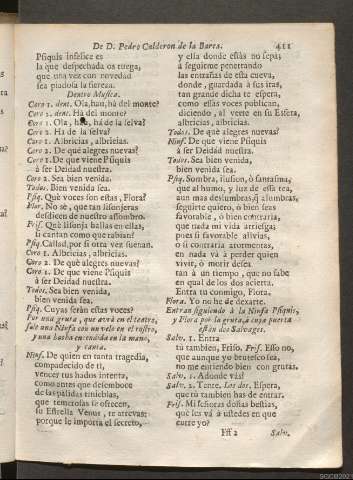 De D. Pedro Calderon de la Barca. 411
Psiquis infelice es
la que despechada os ruega,
que una vez con novedad
sea piadosa la fiereza.
Dentro Musica.
Coro 1. dent. Ola, hau, há del monte?
Coro 2. dent. Ha del monte?
Coro 1. Ola, hau, há de la selva?
Coro 2. Ha de la selva?
Coro 1. Albricias, albricias.
Coro 2. De qué alegres nuevas?
Coro 1. De que viene Psiquis
à ser Deidad nuestra.
Coro 2. Sea bien venida.
Todos. Bien venida sea.
Psiq. Què voces son estas, Flora?
Flor. No sè, que tan lisonjeras
desdicen de nuestro assombro.
Fris. Què lisonja hallas en ellas,
si cantan como que rabian?
Psiq. Callad, por si otra vez suenan.
Coro 1. Albricias, albricias.
Coro 2. De què alegres nuevas?
Coro 1. De que viene Psiquis
à ser Deidad nuestra.
Todos. Sea bien venida,
bien venida sea.
Psiq. Cuyas seràn estas voces?
Por una gruta, que avrà en el teatro,
sale una Ninfa con un velo en el rostro,
y una hacha encendida en la mano,
y canta.
Ninf. De quien en tanta tragedia,
compadecido de ti,
vencer tus hados intenta,
como antes que desemboce
de las palidas tinieblas,
que temerosas se ofrecen,
su Estrella Venus, te atrevas;
porque le importa el secreto,
y ella donde estàs no sepa;
à seguirme penetrando
las entrañas de esta cueva,
donde, guardada à sus iras,
tan grande dicha te espera,
como essas voces publican,
diciendo, al verte en su Esfera,
albricias, albricias.
Todos. De què alegres nuevas?
Ninf. De que viene Psiquis
à ser Deidad nuestra.
Todos. Sea bien venida,
bien venida sea.
Psiq. Sombra, ilusion, ò fantasma,
que al humo, y luz de essa tea,
aun mas deslumbras, que alumbras,
seguirte quiero, ò bien seas
favorable, ò bien contraria,
que nada mi vida arriesga;
pues si favorable alivias,
ò si contraria atormentas,
en nada và à perder quien
vivir, ò morir desea
tan à un tiempo, que no sabe
en qual de los dos acierta.
Entra tu conmigo, Flora.
Flora. Yo no he de dexarte.
Entran siguiendo à la Ninfa Psiquis,
y Flora por la gruta, à cuya puerta
estàn dos Salvages.
Salv. 1. Entra
tu tambien, Friso. Fris. Esso no,
que aunque yo brutesco sea,
no me entiendo bien con grutas.
Salv. 1. Adonde vàs?
Salv. 2. Tente. Los dos. Espera,
que tù tambien has de entrar.
Fris. Mi señoras dosias bestias,
què les và à ustedes en que
entre yo?
Fff 2 Salv.